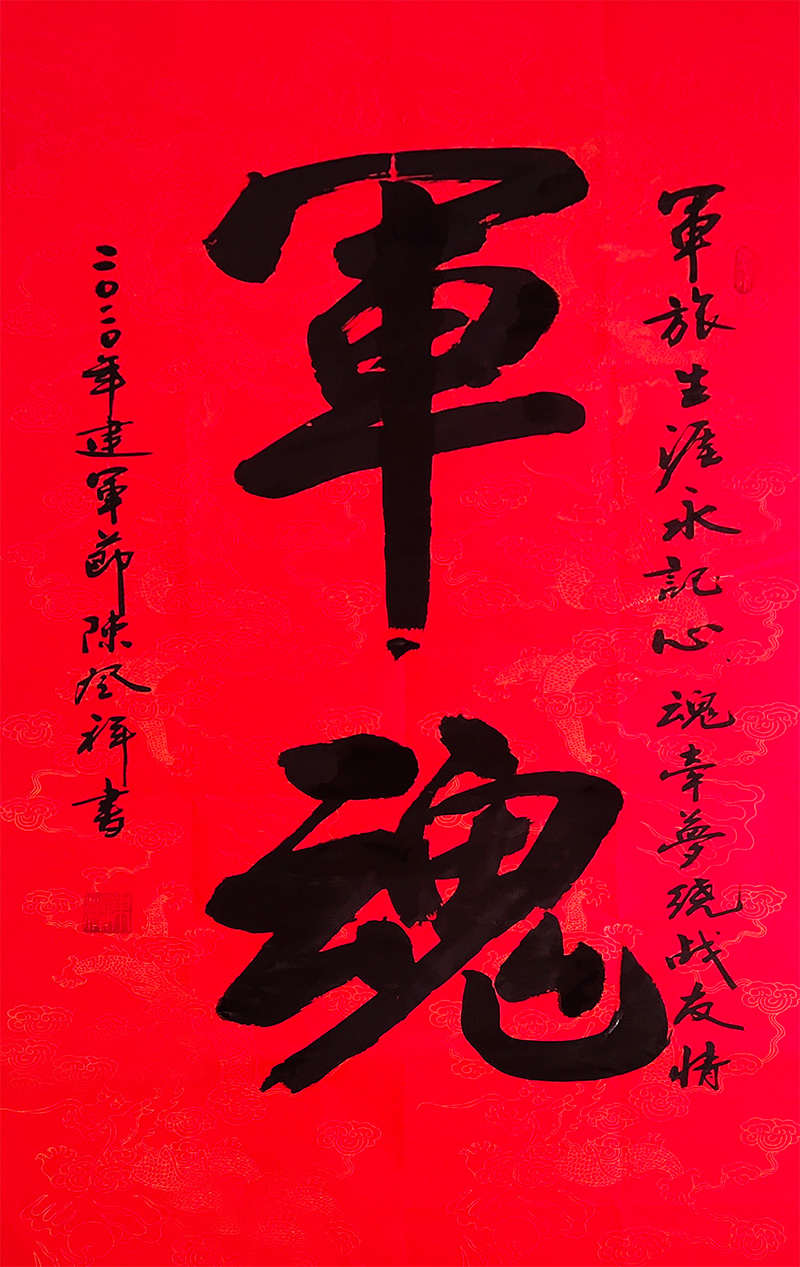 軍旅生涯永記心 魂牵夢绕战友情
軍魂
二〇二〇年建軍節陳风祥書